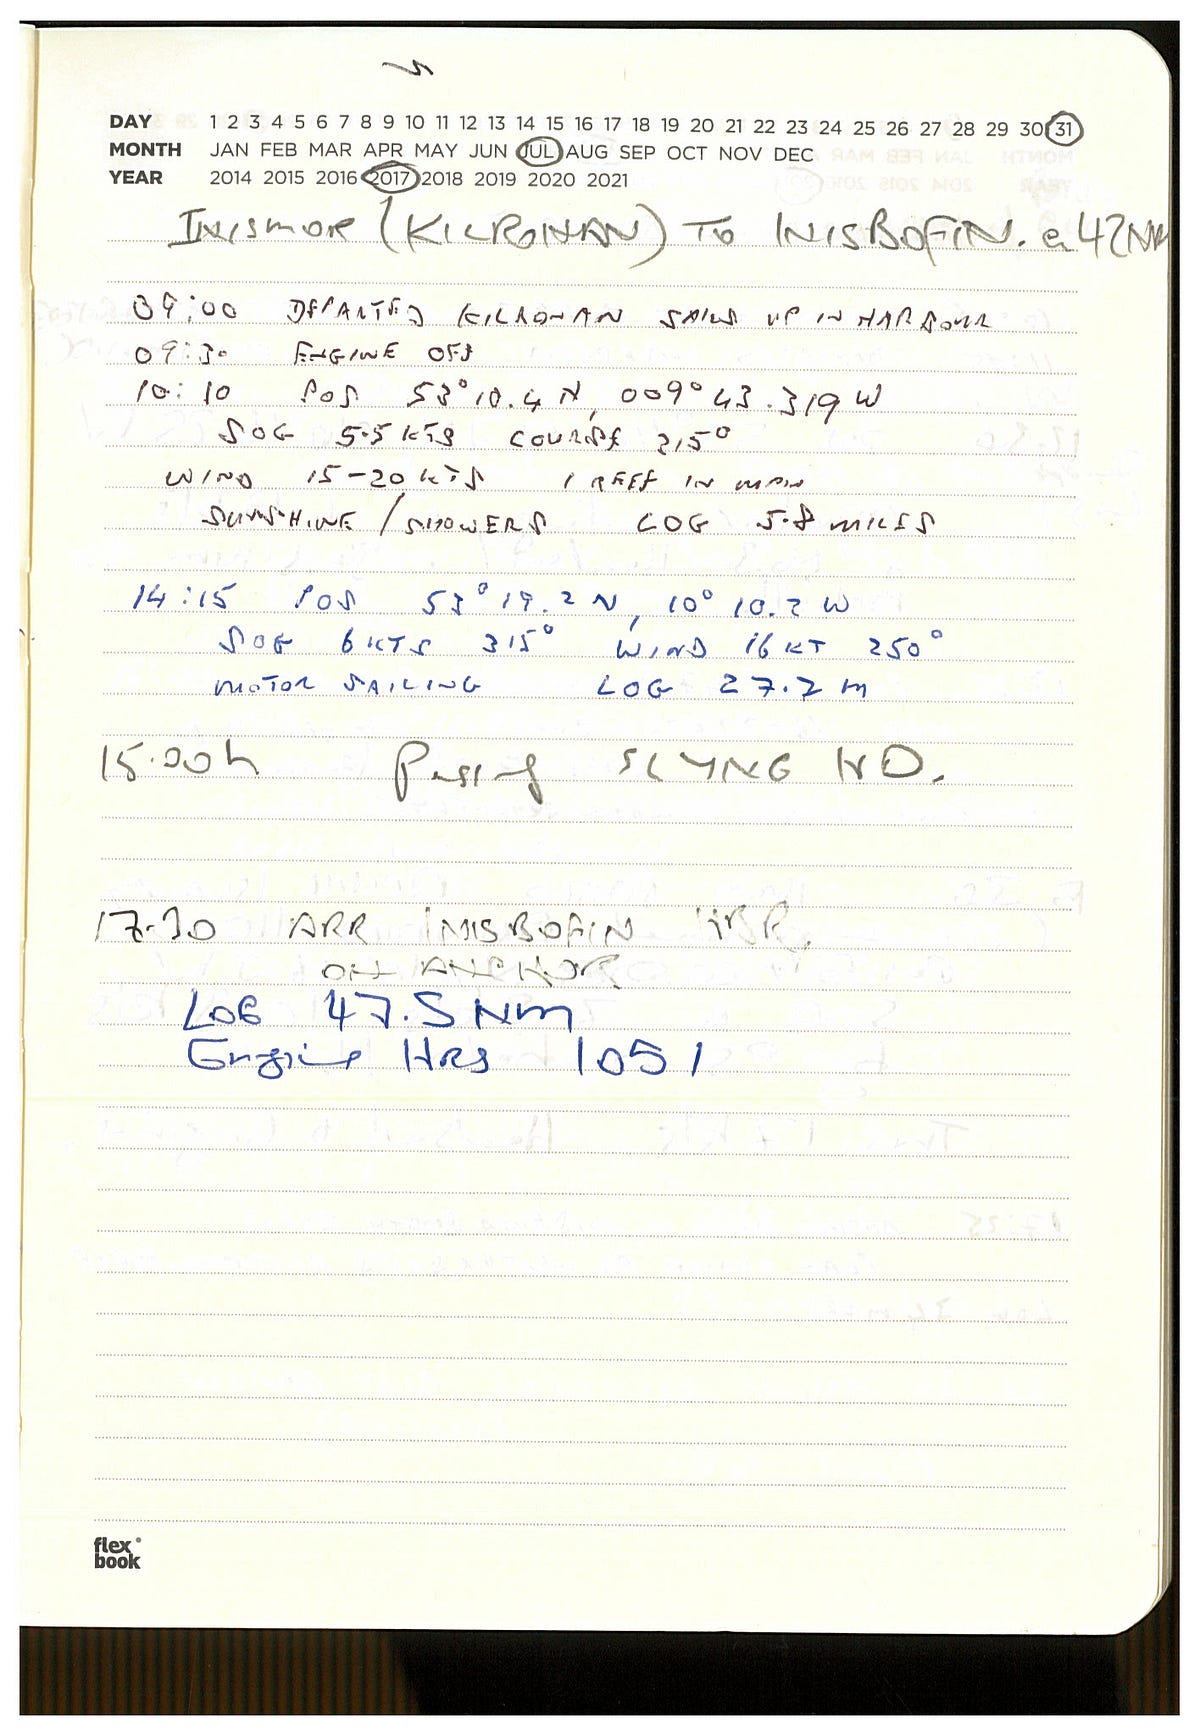 DAY 1 2 3 4 5 6 7 8 9 10 11 12 13 14 15 16 17 18 19 20 21 22 23 24 25 26 27 28 29 30 31
MONTH JAN FEB MAR APR MAY JUN JUL AUG SEP OCT NOV DEC
YEAR 2014 2015 2016 2017 2018 2019 2020 2021
INISMOR (KILRONAN) TO INISBOFIN. 42NM
09:00 DEPARTED KILRONAN SAILS UP IN HARBOUR
09:30 ENGINE OFF
10:10 POS 53° 10.4 N, 009° 43.319 W
SOG 5.5 KTS COURSE 315°
WIND 15-20 KTS 1 REEF IN MAIN
SUNSHINE / SHOWERS LOG 5.8 MILES
14:15 POS 53° 19.2 N, 10° 10.2 W
SOG 6 KTS 315° WIND 16 KT 250°
MOTOR SAILING LOG 27.2 m
15.00h Passing SLYNE HD.
17.30 ARR INISBOFIN HBR.
ON ANCHOR
LOG 47.5 Nm
Engine HRS 1051
flex
book